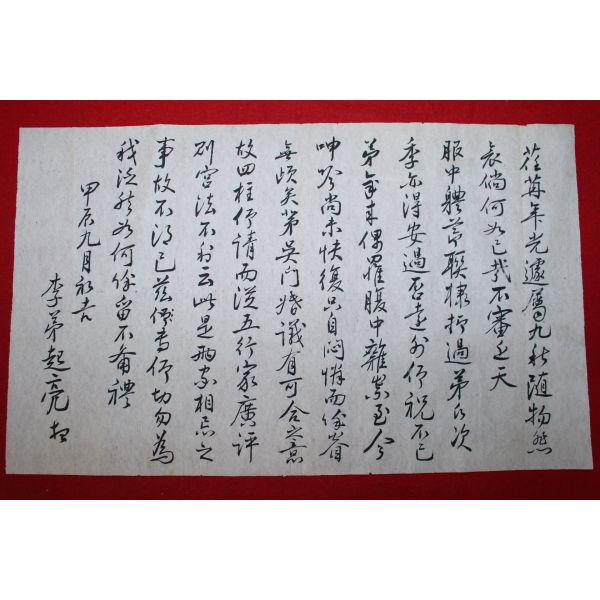 荏苒年光遽屬九秋隨物然
哀倘何如已哉不審玉天
服中體節聯棣抑過弟氏次
季亦得安過否遠外仰祝不已
弟年來偶罹腹中雜祟至今
呻吟尚未快復只自悶憐而餘眷
無煩矣第吳門婚議有可合之意
故四柱仰請而從五行家廣評
則宮法不利云此是兩家相忌之
事故不得已玆還書仰切勿為
我泛然如何餘留不備禮
甲辰九月初吉
李弟起亮拜